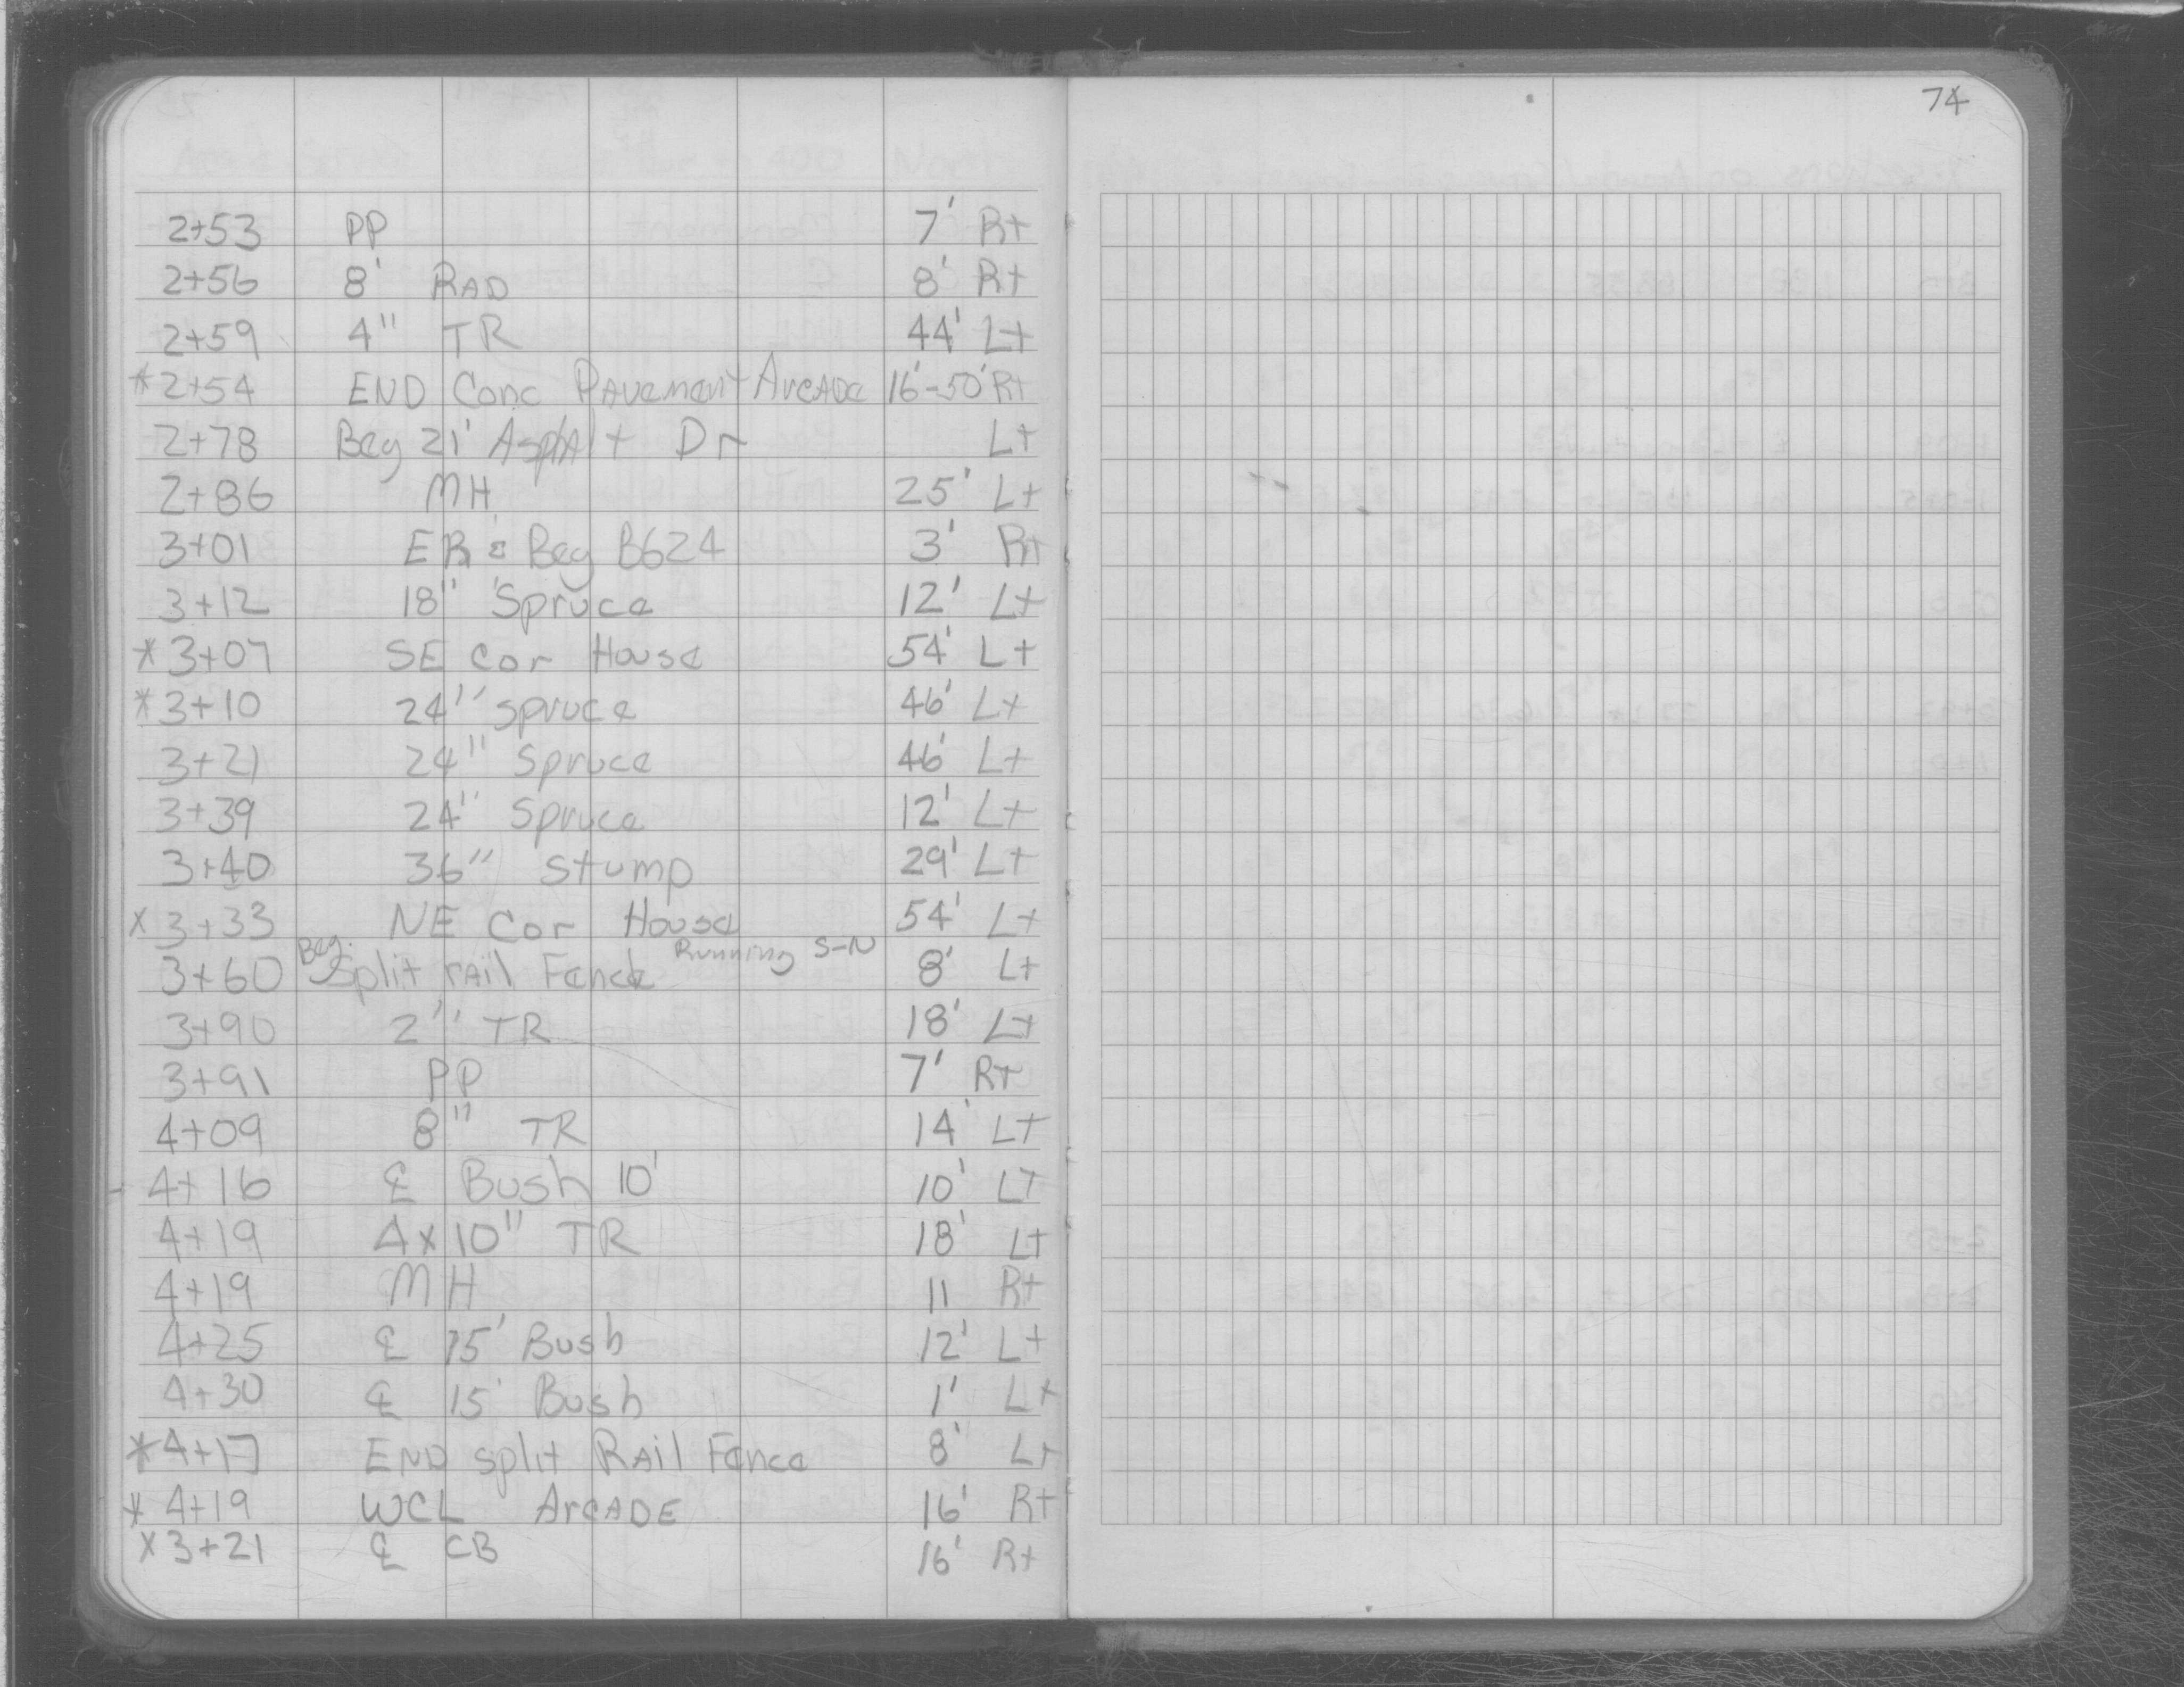 74
2+53 PP 7' Rt
2+56 8' RAD 8' Rt
2+59 4" TR 44' Lt
*2+54 END Conc PAvement ArcADe 16'-50' Rt
2+78 Beg 21' AsphAlt Dr Lt
2+86 MH 25' Lt
3+01 ER & Beg B624 3' Rt
3+12 18" Spruce 12' Lt
*3+07 SE Cor House 54' Lt
*3+10 24" spruce 46' Lt
3+21 24" Spruce 46' Lt
3+39 24" Spruce 12' Lt
3+40 36" stump 29' Lt
*3+33 NE Cor House 54' Lt
3+60 Beg. Split rAil Fence Running S-N 8' Lt
3+90 2" TR 18' Lt
3+91 PP 7' Rt
4+09 8" TR 14' Lt
4+16 ℄ Bush 10' 10' Lt
4+19 4x10" TR 18' Lt
4+19 MH 11 Rt
4+25 ℄ 15' Bush 12' Lt
4+30 ℄ 15' Bush 1' Lt
*4+17 END split RAil Fence 8' Lt
*4+19 WCL ArCADE 16' Rt
*3+21 ℄ CB 16' Rt